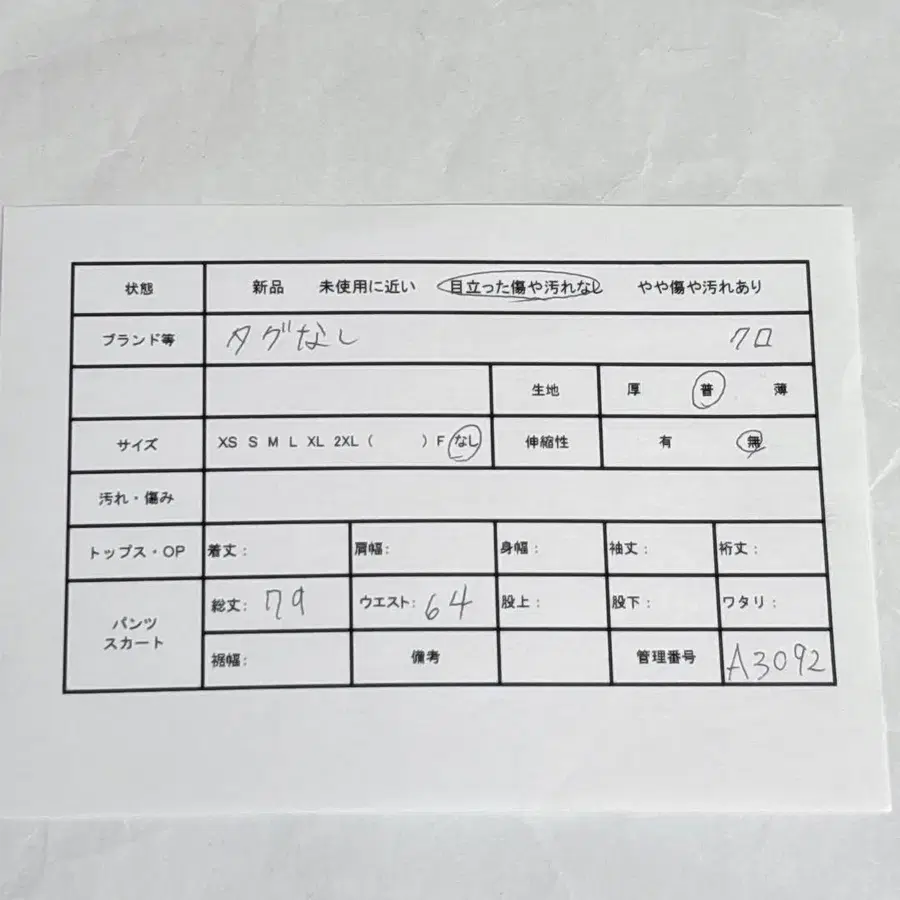 状態 新品 未使用に近い 目立った傷や汚れなし やや傷や汚れあり
ブランド等 タグなし クロ
生地 厚 普 薄
サイズ XS S M L XL 2XL ( ) F なし 伸縮性 有 無
汚れ・傷み
トップス・OP 着丈: 肩幅: 身幅: 袖丈: 裄丈:
パンツ
スカート
総丈: 79 ウエスト: 64 股上: 股下: ワタリ:
裾幅: 備考 管理番号 A3092